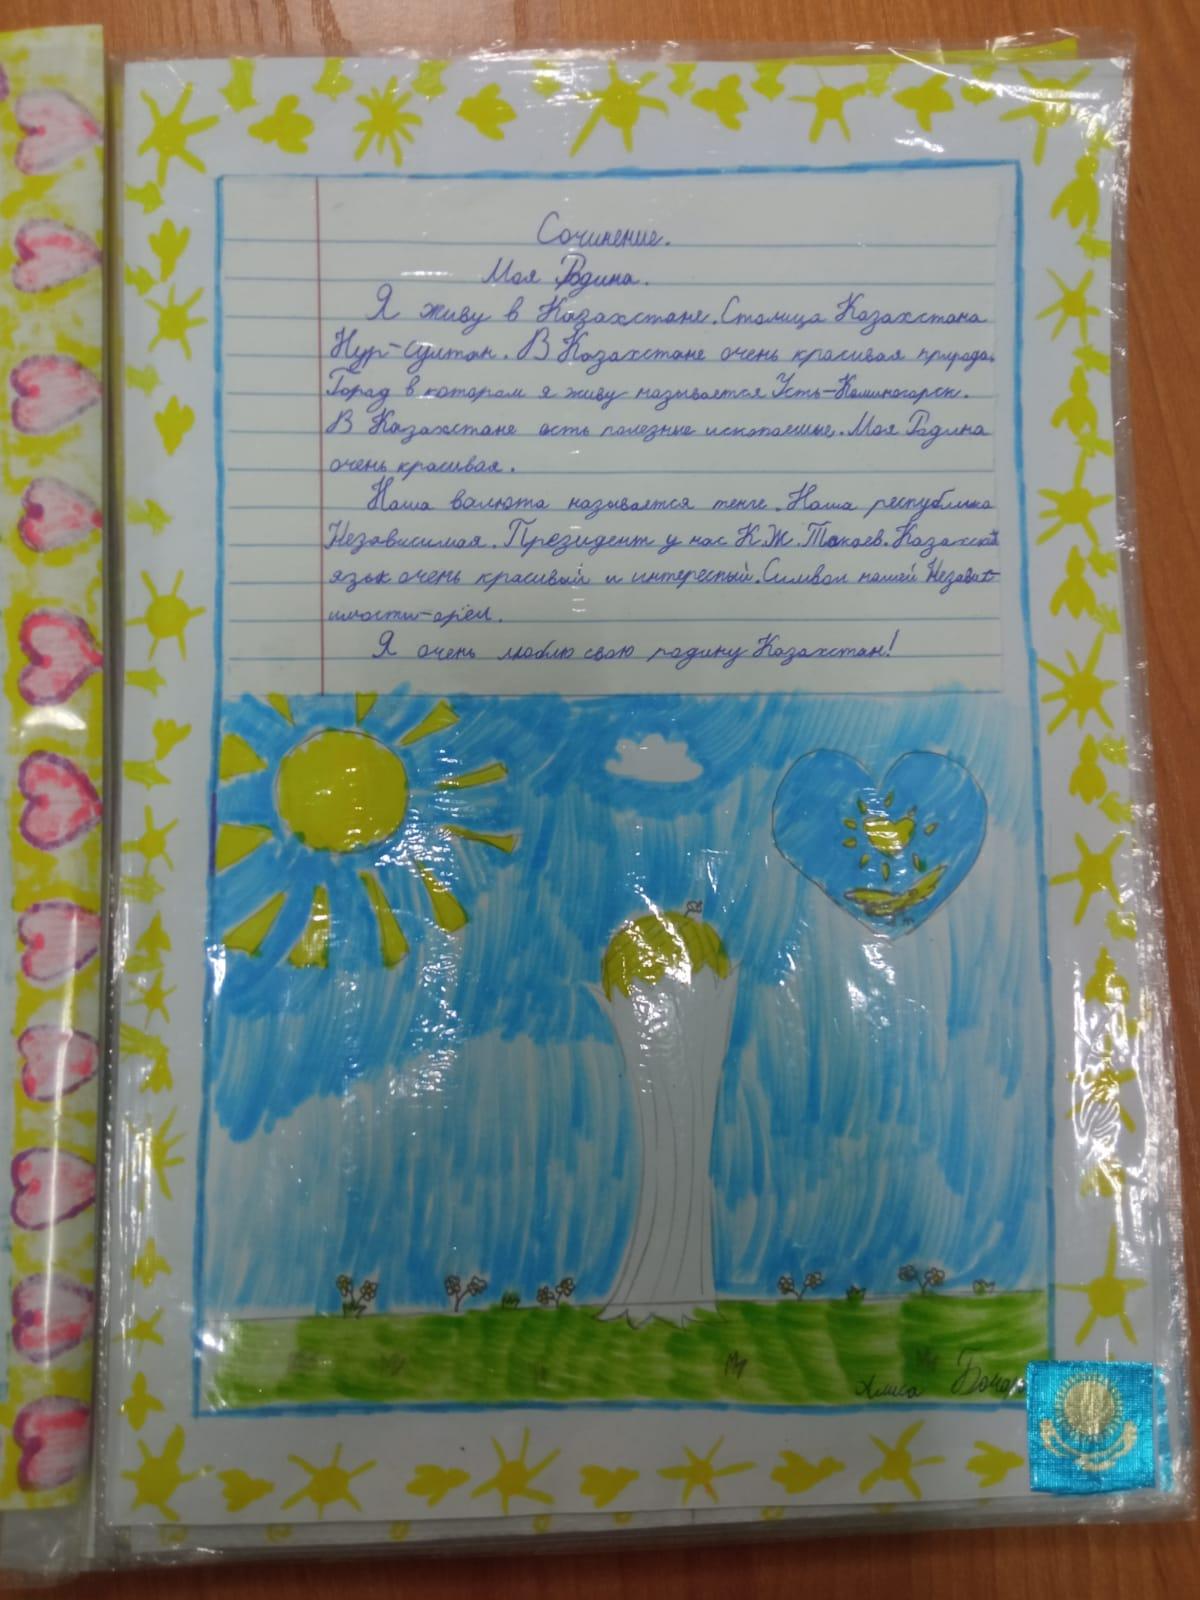 Сочинение.
Моя Родина.
Я живу в Казахстане. Столица Казахстана
Нур-султан. В Казахстане очень красивая природа.
Город в котором я живу называется Усть-Каминогорск.
В Казахстане есть полезные ископаемые. Моя Родина
очень красивая.
Наша валюта называется тенге. Наша республика
Независимая. Президент у нас К.Ж. Токаев. Казахский
язык очень красивый и интересный. Символ нашей Независ-
имости-орёл.
Я очень люблю свою родину Казахстан!
Алиса